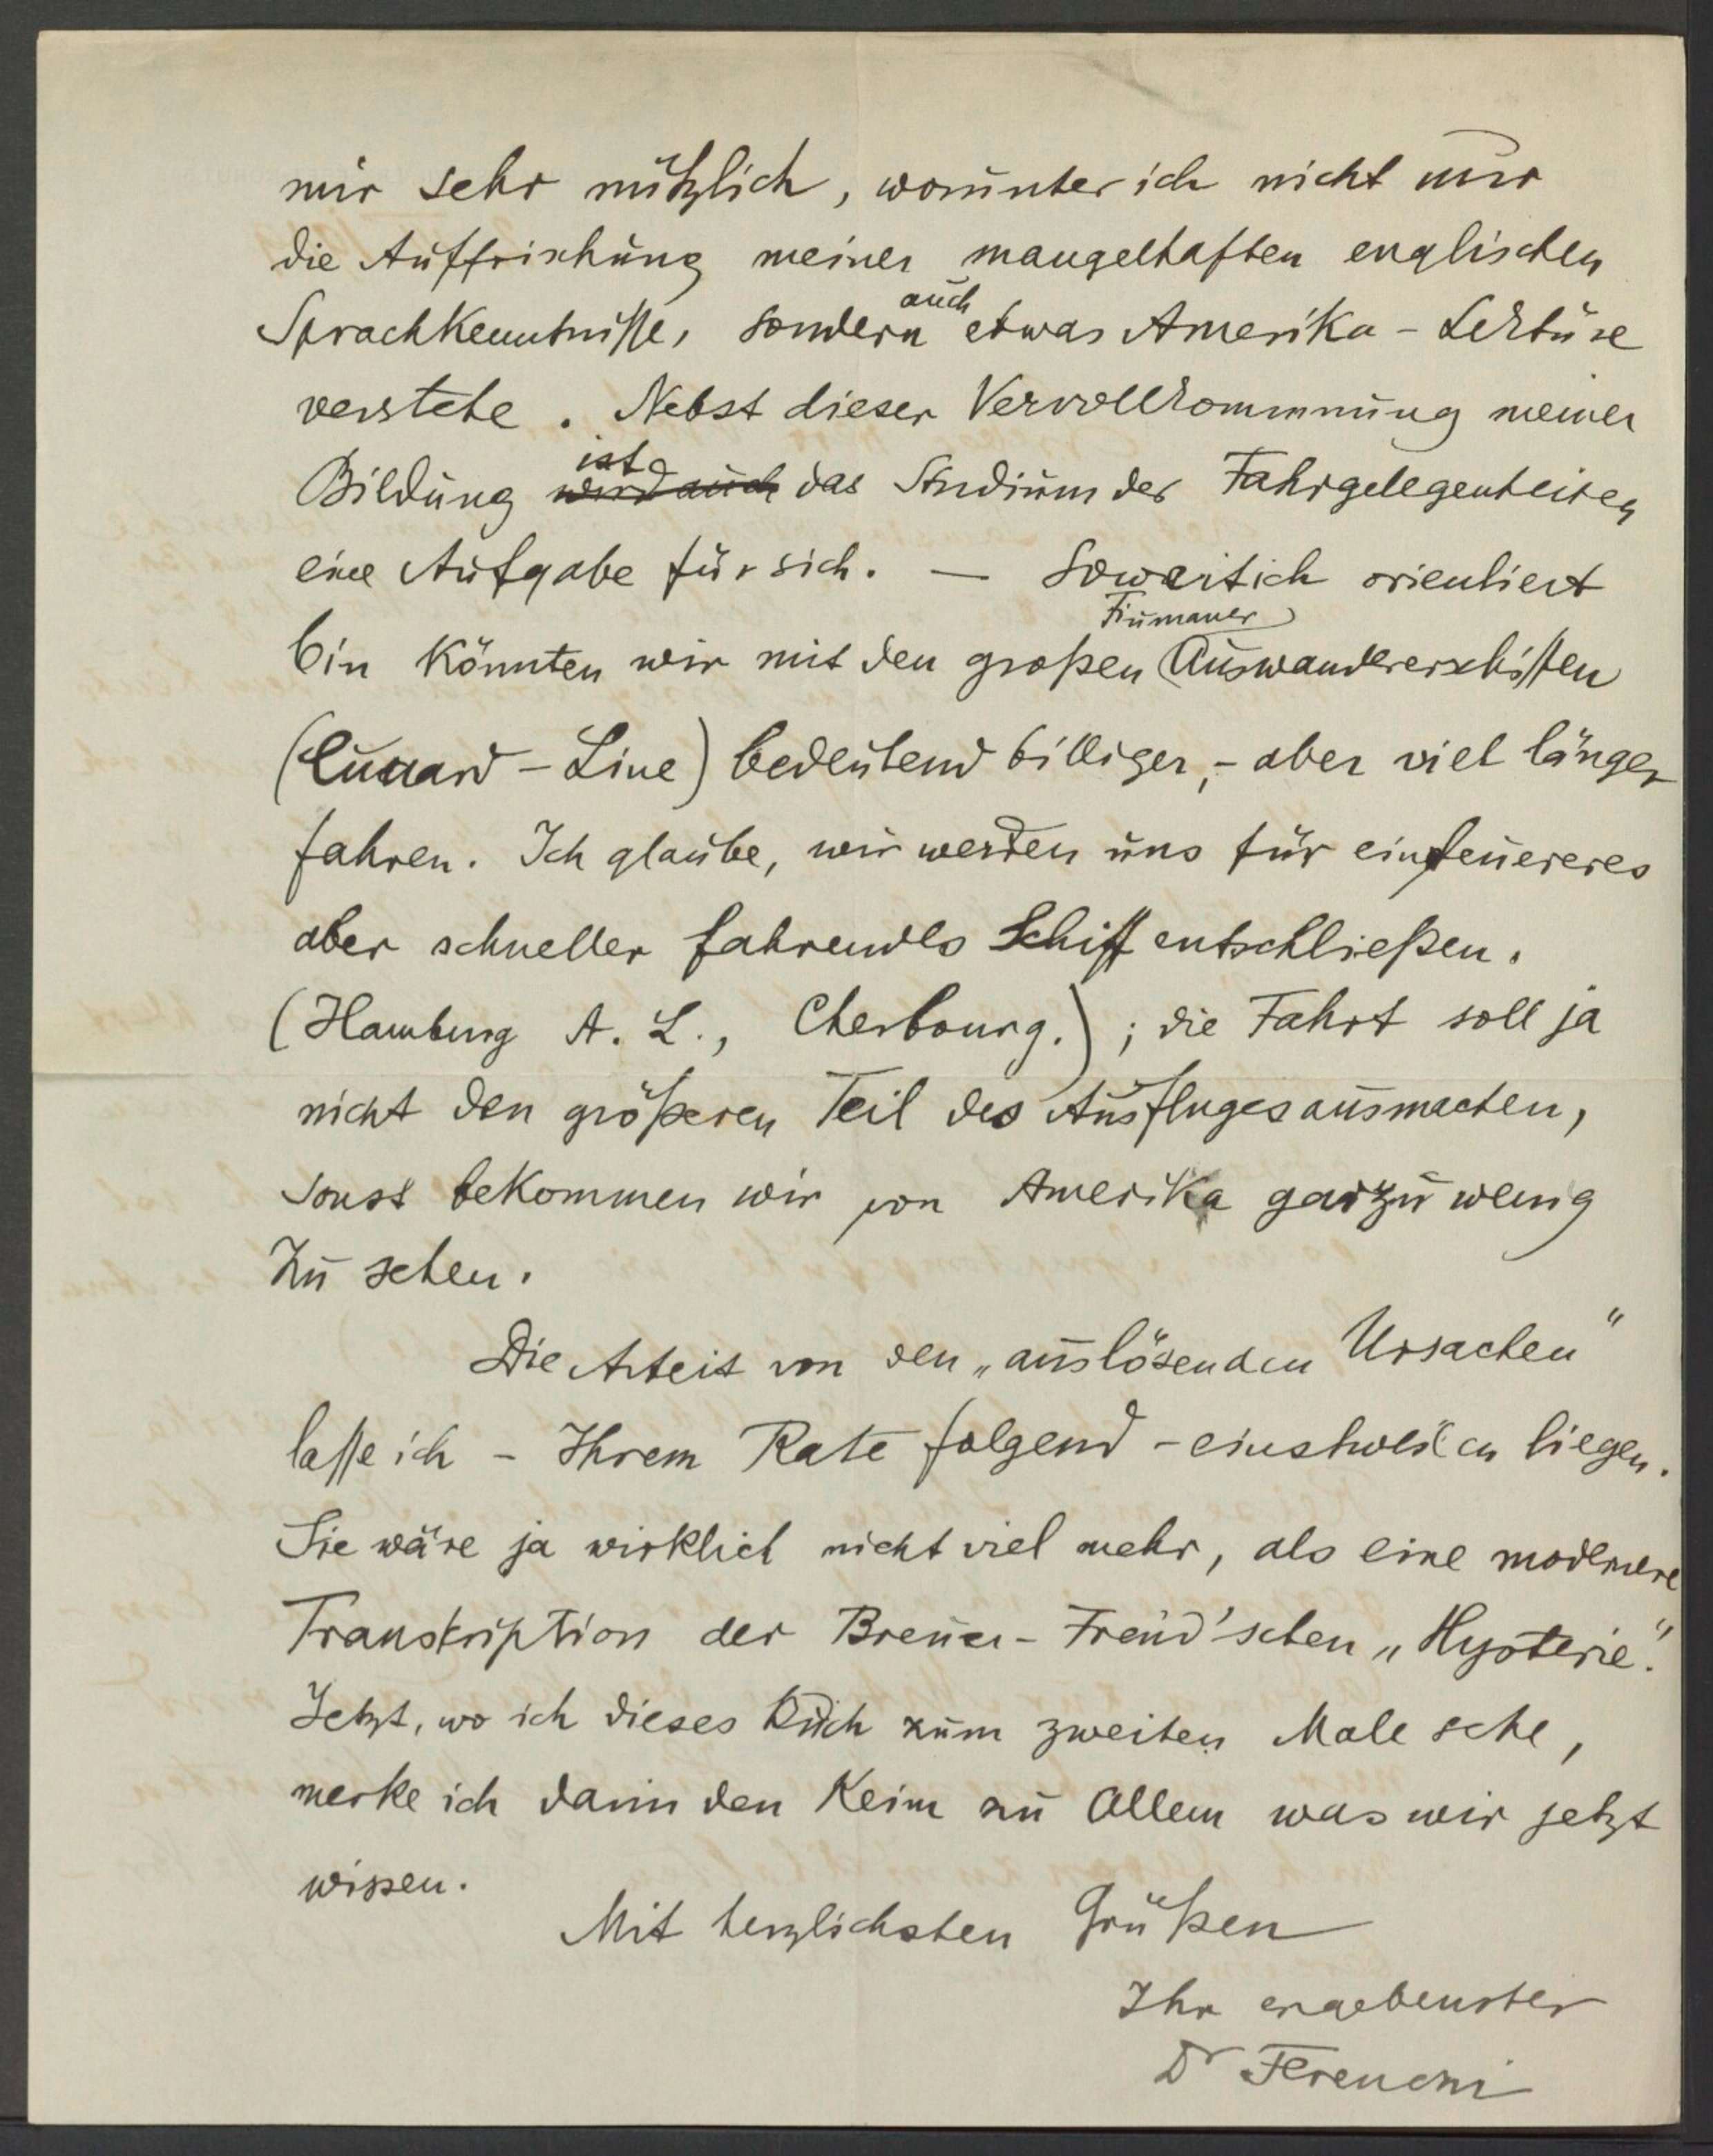 mir sehr nützlich, worunter ich nicht nur
die Auffrischung meiner mangelhaften englischen
Sprachkenntnisse, sondern auch etwas Amerika-Lektüre
verstehe. Nebst dieser Vervollkommnung meiner
Bildung ist wird auch das Studium der Fahrgelegenheiten
eine Aufgabe für sich. — Soweit ich orientiert
bin könnten wir mit den großen Fiumaner Auswandererschiffen
(Cunard-Line) bedeutend billiger, - aber viel länger
fahren. Ich glaube, wir werden uns für ein teuereres
aber schneller fahrendes Schiff entschließen.
(Hamburg A. L., Cherbourg.); die Fahrt soll ja
nicht den größeren Teil des Ausfluges ausmachen,
sonst bekommen wir von Amerika gar zu wenig
zu sehen.
Die Arbeit von den „auslösenden Ursachen"
lasse ich - Ihrem Rate folgend - einstweilen liegen.
Sie wäre ja wirklich nicht viel mehr, als eine modernere
Transkription der Breuer-Freud'schen „Hysterie".
Jetzt, wo ich dieses Buch zum zweiten Male sehe,
merke ich darin den Keim zu Allem was wir jetzt
wissen.
Mit herzlichsten Grüßen
Ihr ergebenster
Dr Ferenczi